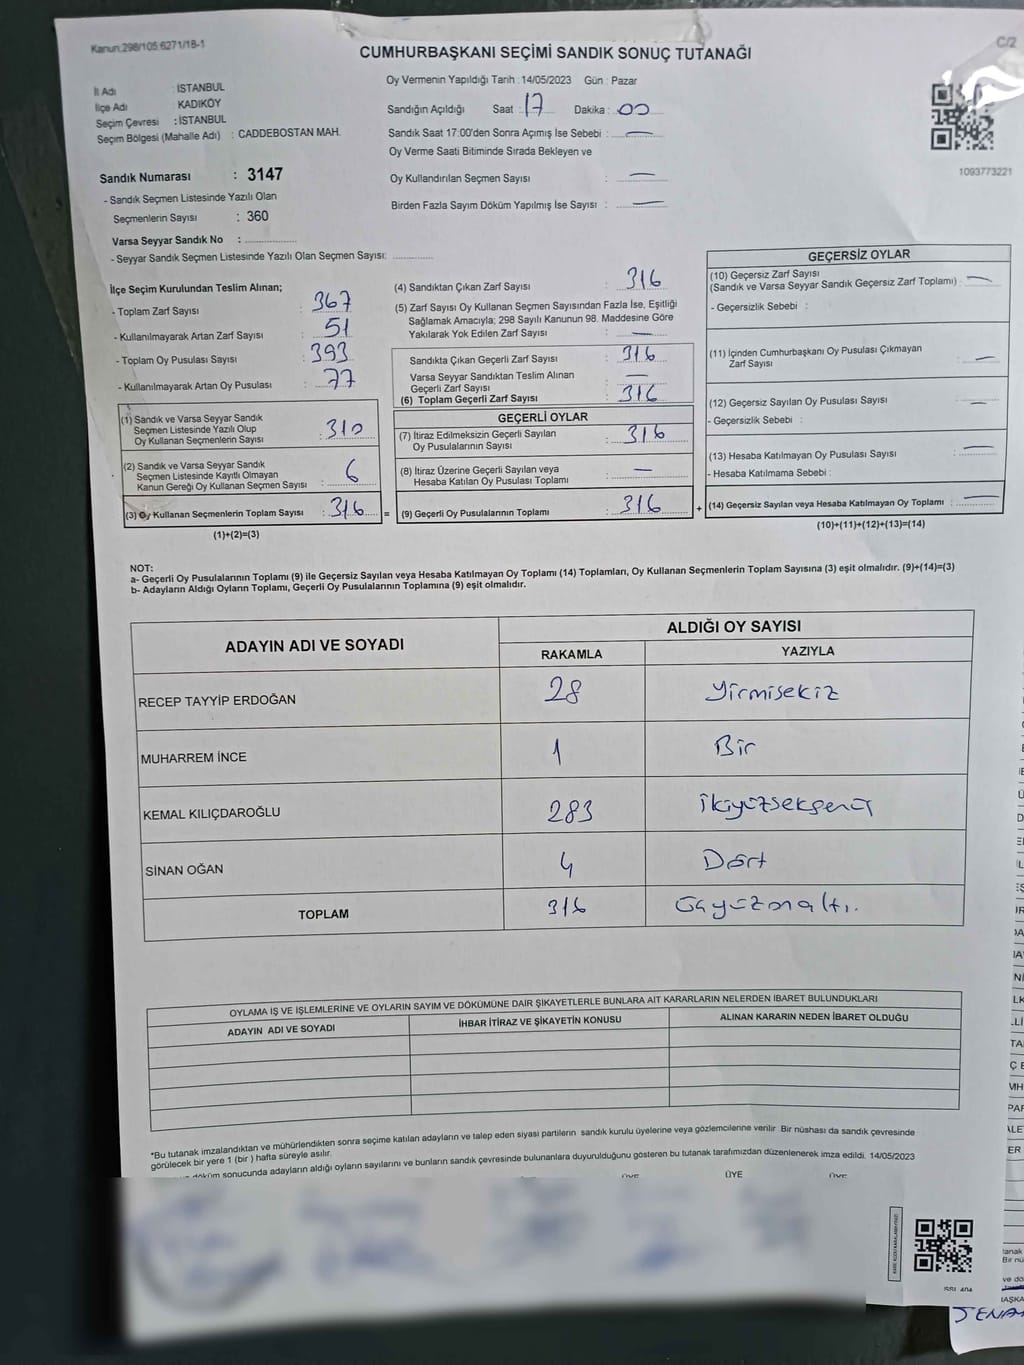 Kanun:298/105:6271/18-1
C/2
CUMHURBAŞKANI SEÇİMİ SANDIK SONUÇ TUTANAĞI
İl Adı : İSTANBUL
İlçe Adı : KADIKÖY
Seçim Çevresi : İSTANBUL
Seçim Bölgesi (Mahalle Adı) : CADDEBOSTAN MAH.
Oy Vermenin Yapıldığı Tarih : 14/05/2023 Gün : Pazar
Sandığın Açıldığı Saat : 17 Dakika : 00
Sandık Saat 17:00'den Sonra Açımış İse Sebebi : —
Oy Verme Saati Bitiminde Sırada Bekleyen ve
Oy Kullandırılan Seçmen Sayısı : —
Birden Fazla Sayım Döküm Yapılmış İse Sayısı : —
1093773221
Sandık Numarası : 3147
- Sandık Seçmen Listesinde Yazılı Olan
Seçmenlerin Sayısı : 360
Varsa Seyyar Sandık No :
- Seyyar Sandık Seçmen Listesinde Yazılı Olan Seçmen Sayısı:
İlçe Seçim Kurulundan Teslim Alınan;
- Toplam Zarf Sayısı : 367
- Kullanılmayarak Artan Zarf Sayısı : 51
- Toplam Oy Pusulası Sayısı : 393
- Kullanılmayarak Artan Oy Pusulası : 77
(1) Sandık ve Varsa Seyyar Sandık
Seçmen Listesinde Yazılı Olup
Oy Kullanan Seçmenlerin Sayısı : 310
(2) Sandık ve Varsa Seyyar Sandık
Seçmen Listesinde Kayıtlı Olmayan
Kanun Gereği Oy Kullanan Seçmen Sayısı : 6
(3) Oy Kullanan Seçmenlerin Toplam Sayısı : 316 =
(1)+(2)=(3)
(4) Sandıktan Çıkan Zarf Sayısı : 316
(5) Zarf Sayısı Oy Kullanan Seçmen Sayısından Fazla İse, Eşitliği
Sağlamak Amacıyla; 298 Sayılı Kanunun 98. Maddesine Göre
Yakılarak Yok Edilen Zarf Sayısı : —
Sandıkta Çıkan Geçerli Zarf Sayısı : 316
Varsa Seyyar Sandıktan Teslim Alınan
Geçerli Zarf Sayısı : —
(6) Toplam Geçerli Zarf Sayısı : 316
GEÇERLİ OYLAR
(7) İtiraz Edilmeksizin Geçerli Sayılan
Oy Pusulalarının Sayısı : 316
(8) İtiraz Üzerine Geçerli Sayılan veya
Hesaba Katılan Oy Pusulası Toplamı : —
(9) Geçerli Oy Pusulalarının Toplamı : 316 +
GEÇERSİZ OYLAR
(10) Geçersiz Zarf Sayısı
(Sandık ve Varsa Seyyar Sandık Geçersiz Zarf Toplamı) : —
- Geçersizlik Sebebi :
(11) İçinden Cumhurbaşkanı Oy Pusulası Çıkmayan
Zarf Sayısı : —
(12) Geçersiz Sayılan Oy Pusulası Sayısı : —
- Geçersizlik Sebebi :
(13) Hesaba Katılmayan Oy Pusulası Sayısı : —
- Hesaba Katılmama Sebebi :
(14) Geçersiz Sayılan veya Hesaba Katılmayan Oy Toplamı : —
(10)+(11)+(12)+(13)=(14)
NOT:
a- Geçerli Oy Pusulalarının Toplamı (9) ile Geçersiz Sayılan veya Hesaba Katılmayan Oy Toplamı (14) Toplamları, Oy Kullanan Seçmenlerin Toplam Sayısına (3) eşit olmalıdır. (9)+(14)=(3)
b- Adayların Aldığı Oyların Toplamı, Geçerli Oy Pusulalarının Toplamına (9) eşit olmalıdır.
ADAYIN ADI VE SOYADI
ALDIĞI OY SAYISI
RAKAMLA YAZIYLA
RECEP TAYYİP ERDOĞAN 28 Yirmisekiz
MUHARREM İNCE 1 Bir
KEMAL KILIÇDAROĞLU 283 ikiyüzseksenüç
SİNAN OĞAN 4 Dört
TOPLAM 316 üçyüzonaltı.
OYLAMA İŞ VE İŞLEMLERİNE VE OYLARIN SAYIM VE DÖKÜMÜNE DAİR ŞİKAYETLERLE BUNLARA AİT KARARLARIN NELERDEN İBARET BULUNDUKLARI
ADAYIN ADI VE SOYADI İHBAR İTİRAZ VE ŞİKAYETİN KONUSU ALINAN KARARIN NEDEN İBARET OLDUĞU
*Bu tutanak imzalandıktan ve mühürlendikten sonra seçime katılan adayların ve talep eden siyasi partilerin sandık kurulu üyelerine veya gözlemcilerine verilir. Bir nüshası da sandık çevresinde
görülecek bir yere 1 (bir) hafta süreyle asılır.
döküm sonucunda adayların aldığı oyların sayılarını ve bunların sandık çevresinde bulunanlara duyurulduğunu gösteren bu tutanak tarafımızdan düzenlenerek imza edildi. 14/05/2023
ÜYE ÜYE ÜYE